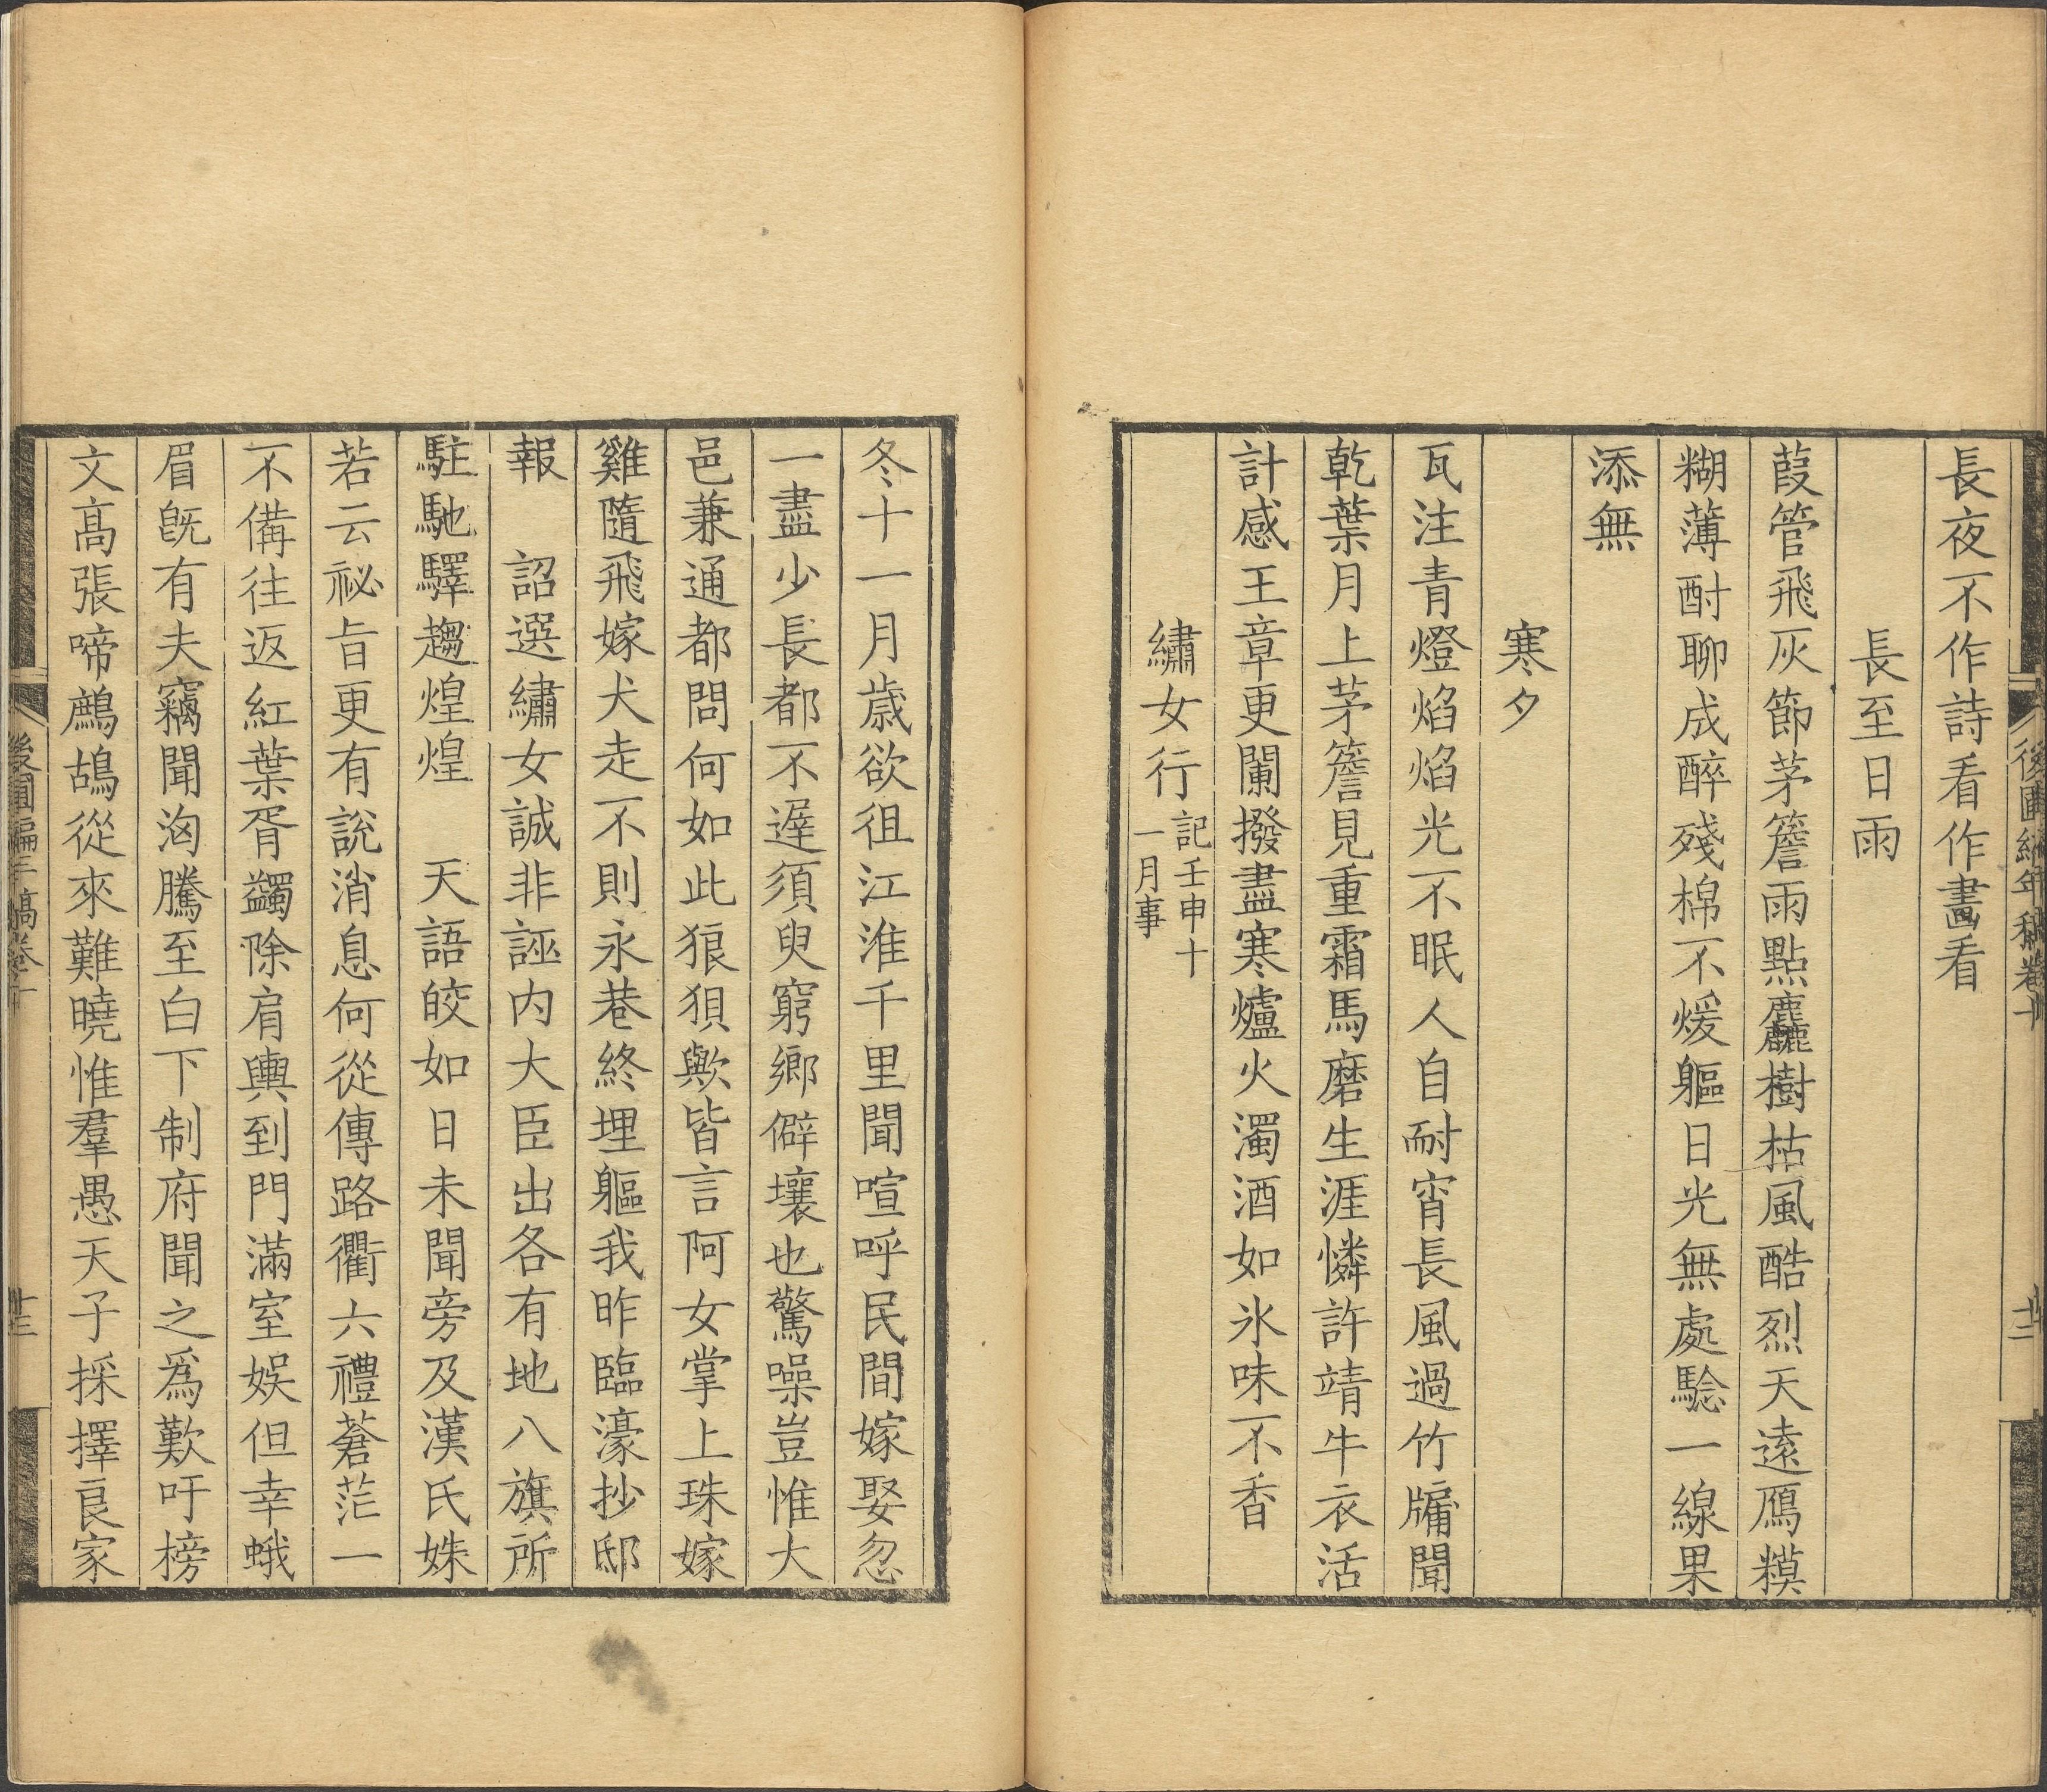 長夜不作詩看作畫看
長至日雨
葭管飛灰節茅簷雨點麤樹枯風酷烈天遠鴈糢
糊薄酎聊成醉殘棉不煖軀日光無處騐一線果
添無
寒夕
瓦注青燈焰焰光不眠人自耐宵長風過竹牖聞
乾葉月上茅簷見重霜馬磨生涯憐許靖牛衣活
計感王章更闌撥盡寒爐火濁酒如氷味不香
繡女行記壬申十
一月事
後圃編年稿卷十
十二
冬十一月歲欲徂江淮千里聞喧呼民間嫁娶忽
一盡少長都不遲須臾窮鄉僻壤也驚噪豈惟大
邑兼通都問何如此狼狽歟皆言阿女掌上珠嫁
雞隨飛嫁犬走不則永巷終埋軀我昨臨濠抄邸
報　詔選繡女誠非誣内大臣出各有地八旗所
駐馳驛趨煌煌　天語皎如日未聞旁及漢氏姝
若云祕旨更有說消息何從傳路衢六禮蒼茫一
不備往返紅葉胥蠲除肩輿到門滿室娱但幸蛾
眉旣有夫竊聞洶騰至白下制府聞之爲歎吁榜
文高張啼鷓鴣從來難曉惟羣愚天子採擇良家
後圃編年稿卷十
十三